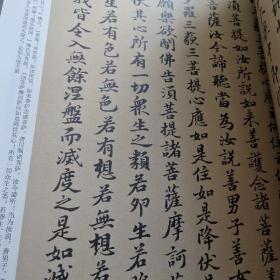 須菩提如汝所說如來善護念諸
薩汝今諦聽當為汝說善男子善女
羅三藐三菩提心應如是住如是降伏
願樂欲聞佛告須菩提諸菩薩摩訶
其心所有一切眾生之類若卵生
若有色若無色若有想若無想若
我皆令入無餘涅槃而滅度之是如滅